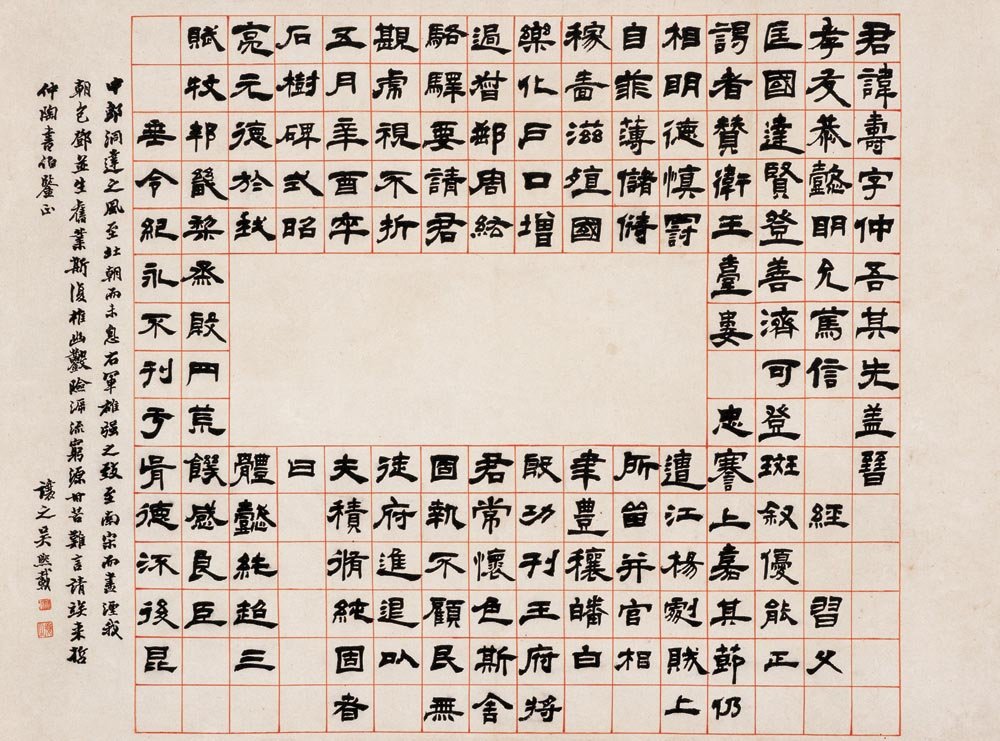 君諱壽字仲吾其先盖晉
孝友恭懿明允篤信 經 習父
匡國達賢登善濟可登斑叙優能正
謁者贊衛王臺婁 忠謇上嘉其節仍
相明德慎罰 遭江楊劇賊上
自菲薄儲偫 所畄并官相
稼嗇滋殖國 聿豐穰皤白
樂化户口增 殷功刊王府將
過督郵周紘 君常懷色斯舍
駱驛要請君 固執不顧民無
覬虎視不折 徒府進退㠯
五月辛酉卒 夫積脩純固者
石樹碑式昭 曰
亮元德於我 體懿純超三
賦牧邦畿黎烝殷罔荒饑感良臣
垂令紀永不刊于胥德流後昆
中郎洞達之風至北朝而未息右軍雄强之致至南宋而盡湮我
朝包鄧並生舊業斯復椎幽鑿險溯流窮源甘苦難言請諉来哲
仲陶書伯鑒正
讓之吴熙載